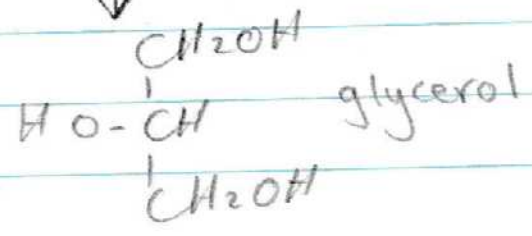 CH2OH
HO-CH glycerol
CH2OH